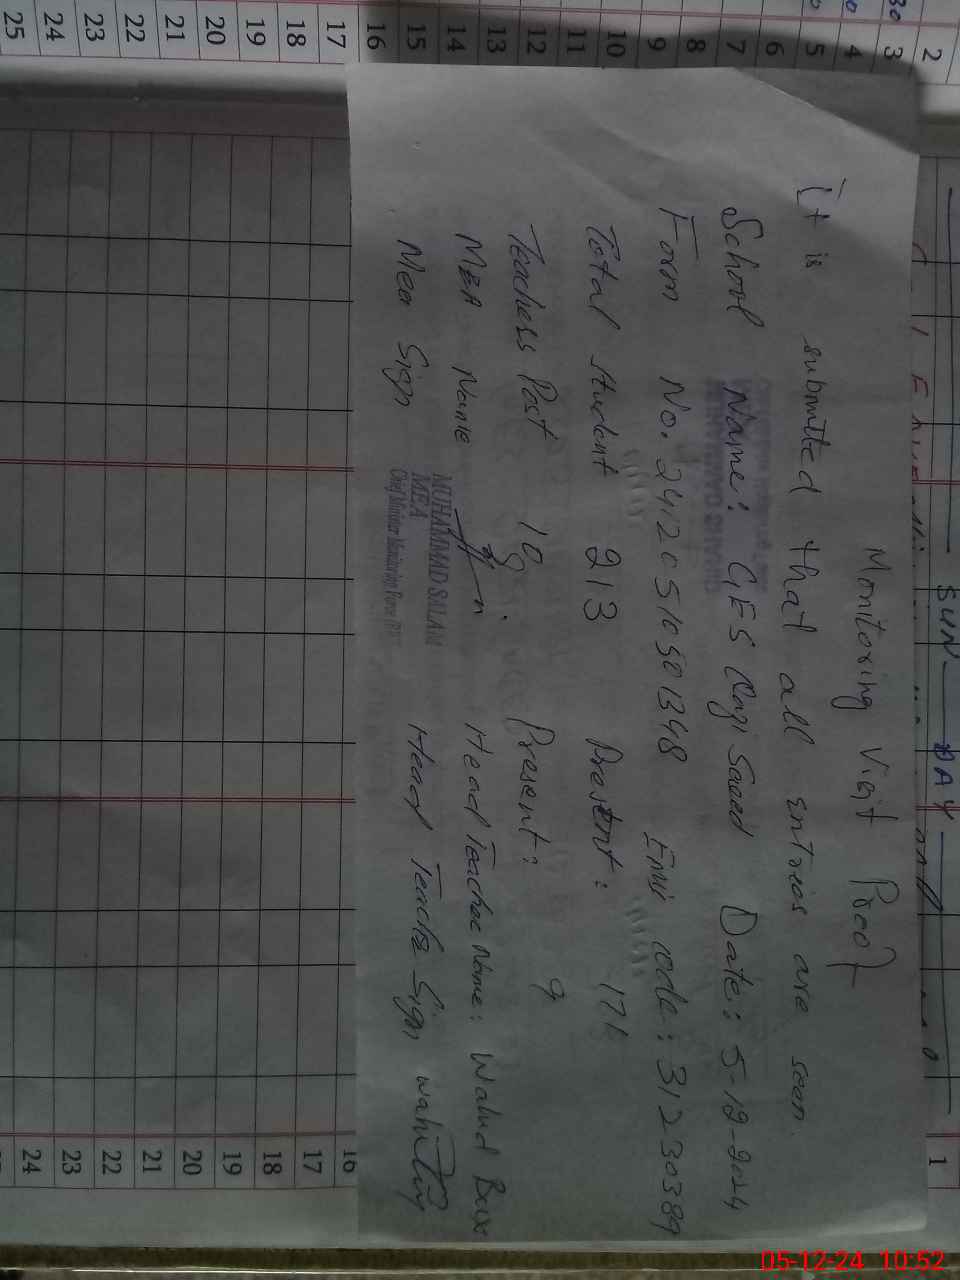 Monitoring Visit Proof
it is submitted that all entries are seen.
School Name: GES Qazi Saeed Date: 5-12-2024
Form No. 24120510501348 Emis code: 31230389
Total student 213 Present: 171
Teachers Post 10 Present: 9
MEA Name Head Teacher Name: Walud Bux
Mea Sign Head Teacher Sign
MUHAMMAD SALAM
MEA
Chief Minister Monitoring Force
SUN DAY
1
2
3
4
5
6
7
8
9
10
11
12
13
14
15
16
17
18
19
20
21
22
23
24
25
16
17
18
19
20
21
22
23
24
05-12-24 10:52